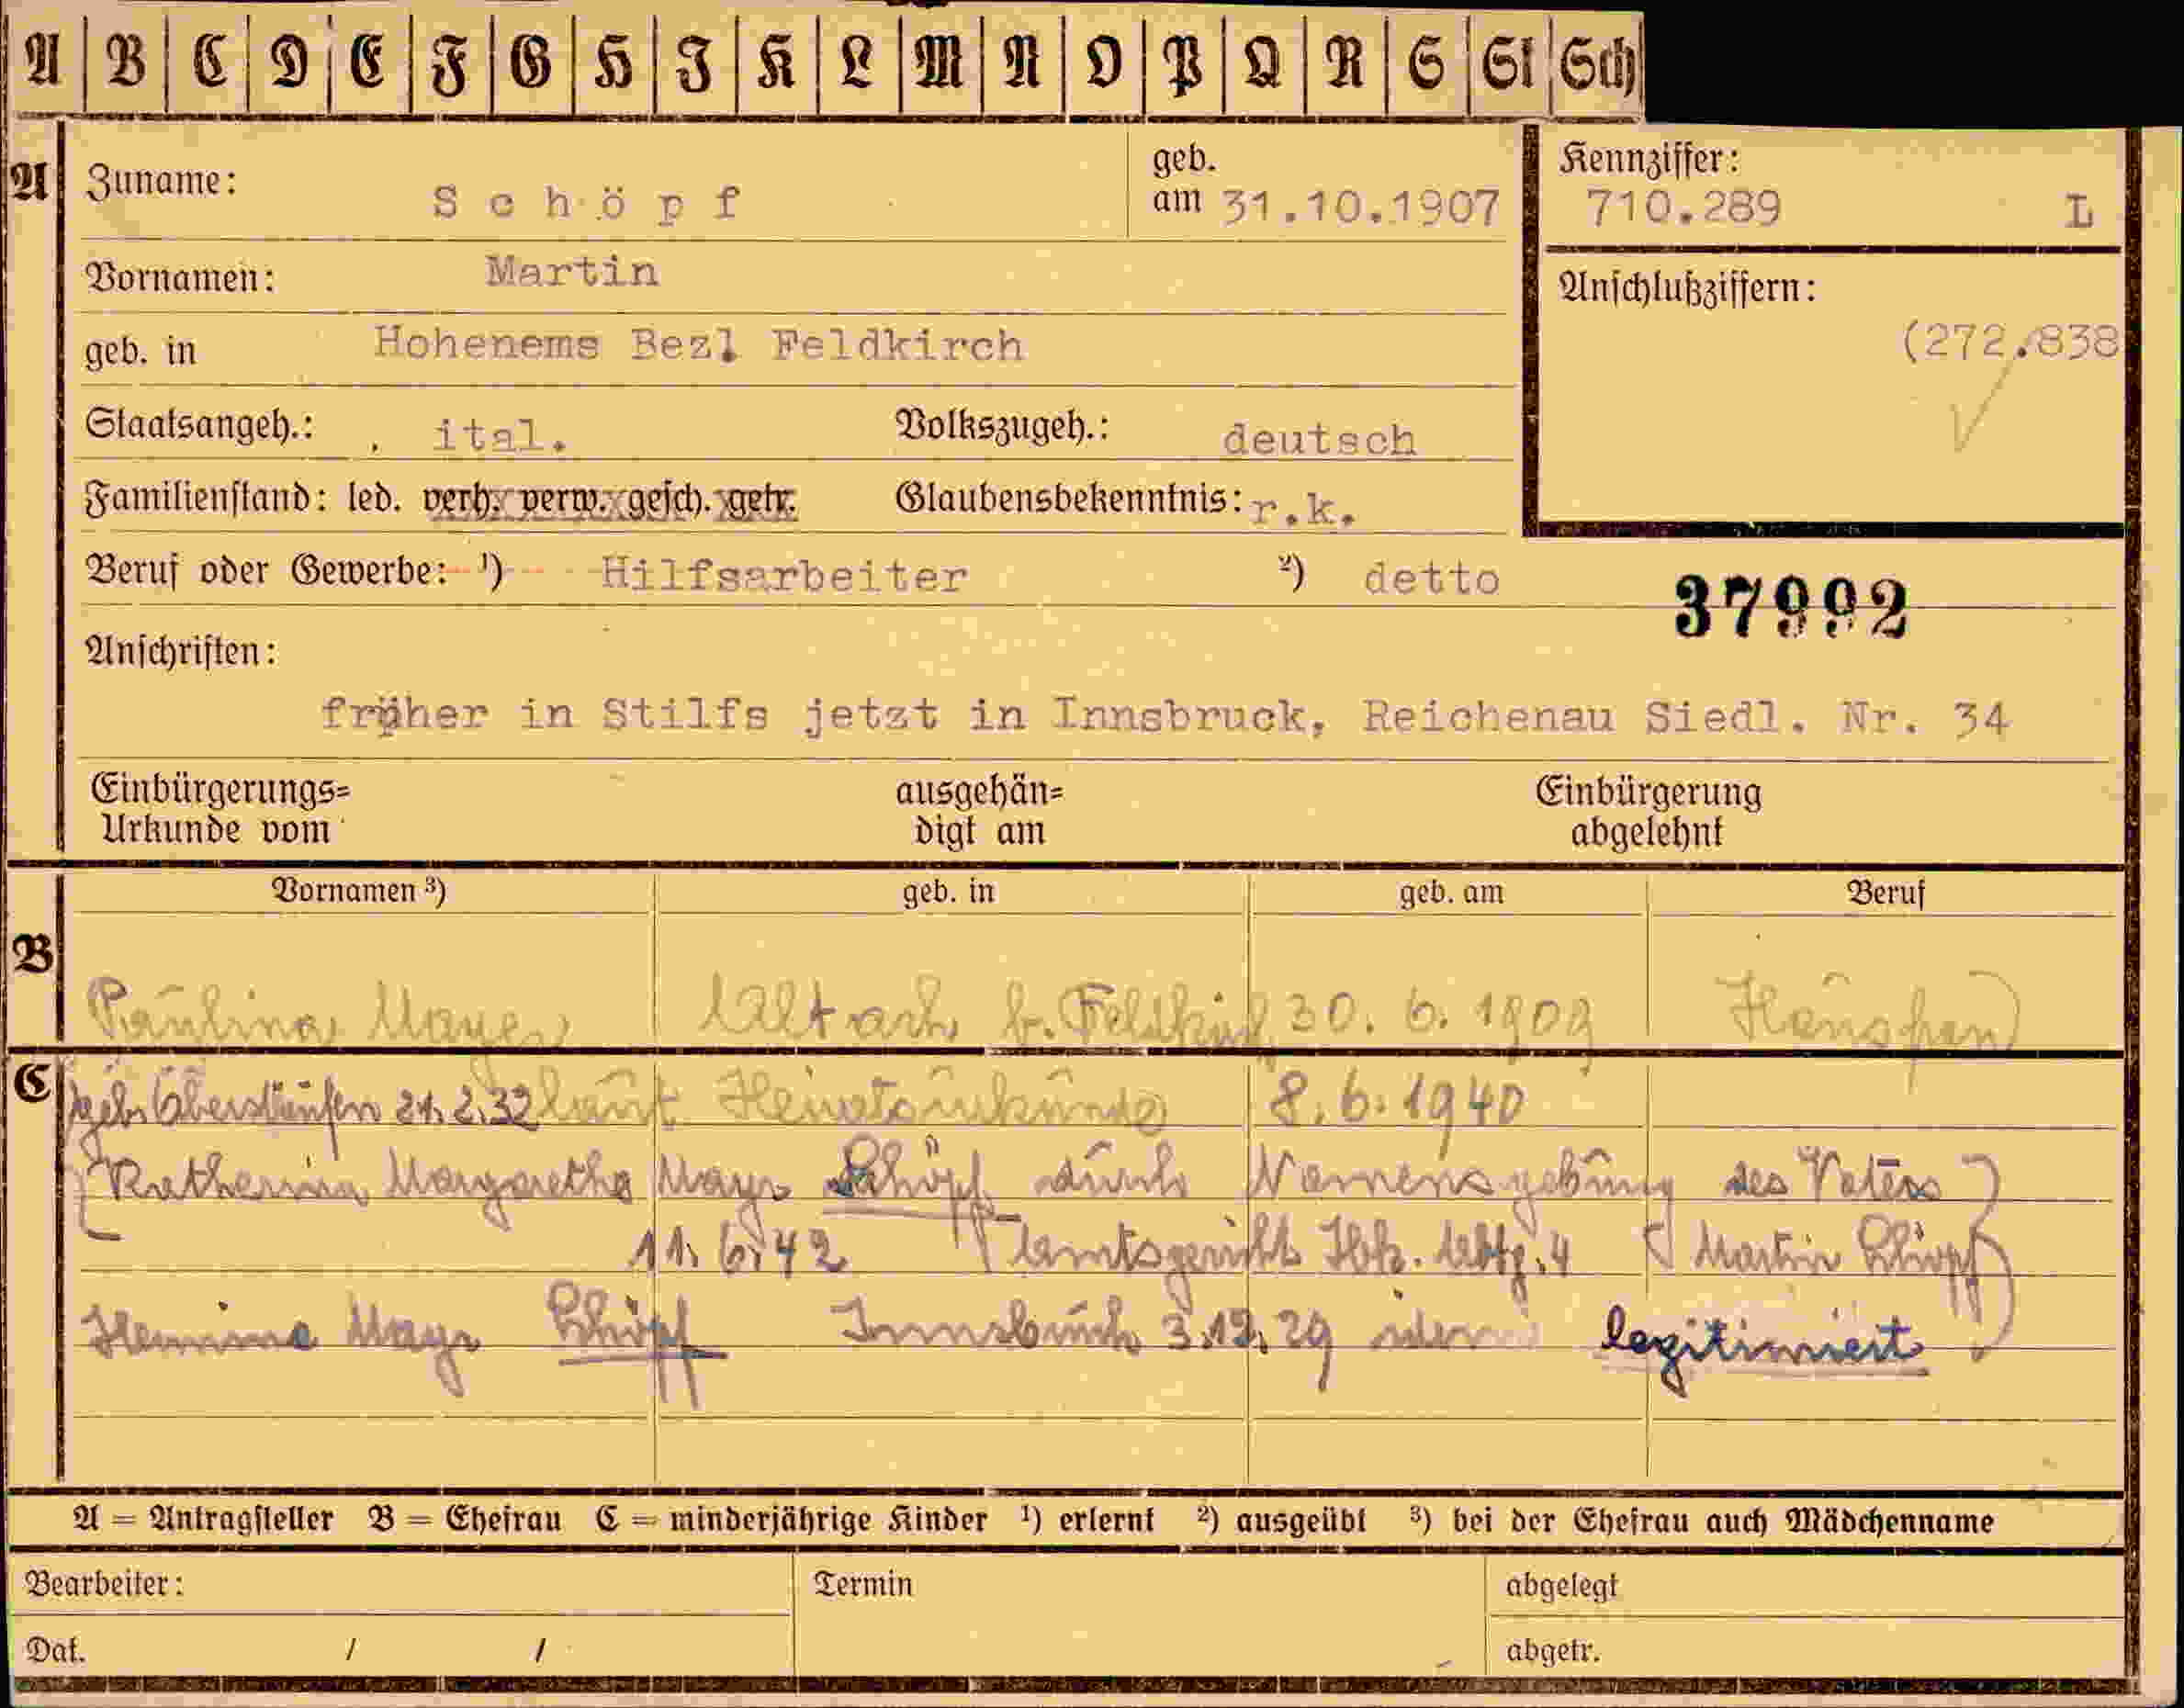 A B C D E F G H I K L M N O P Q R S St Sch
A Zuname: Schöpf geb. am 31.10.1907 Kennziffer: 710.289 L
Vornamen: Martin Anschlußziffern: (272.838
geb. in Hohenems Bez. Feldkirch
Staatsangeh.: ital. Volkszugeh.: deutsch
Familienstand: led. verh. verw. gesch. getr. Glaubensbekenntnis: r.k.
Beruf oder Gewerbe: ¹) Hilfsarbeiter ²) detto
37992
Anschriften:
früher in Stilfs jetzt in Innsbruck, Reichenau Siedl. Nr. 34
Einbürgerungs= ausgehän= Einbürgerung
Urkunde vom digt am abgelehnt
Vornamen ³) geb. in geb. am Beruf
B Paulina Mayer Altach b. Feldkirch 30. 6. 1909 Hausfrau
C geb. Oberstaufen 21. 2. 32 laut Heiratsurkunde 8. 6. 1940
Katherina Margaretha Mayr Schöpf durch Namensgebung des Vaters
11. 6. 42 Amtsgericht Ibk. Abtg. 4 Martin Schöpf
Hermine Mayr Schöpf Innsbruck 3.12.29 legitimiert
A = Antragsteller B = Ehefrau C = minderjährige Kinder ¹) erlernt ²) ausgeübt ³) bei der Ehefrau auch Mädchenname
Bearbeiter: Termin abgelegt
Dat. / / abgetr.